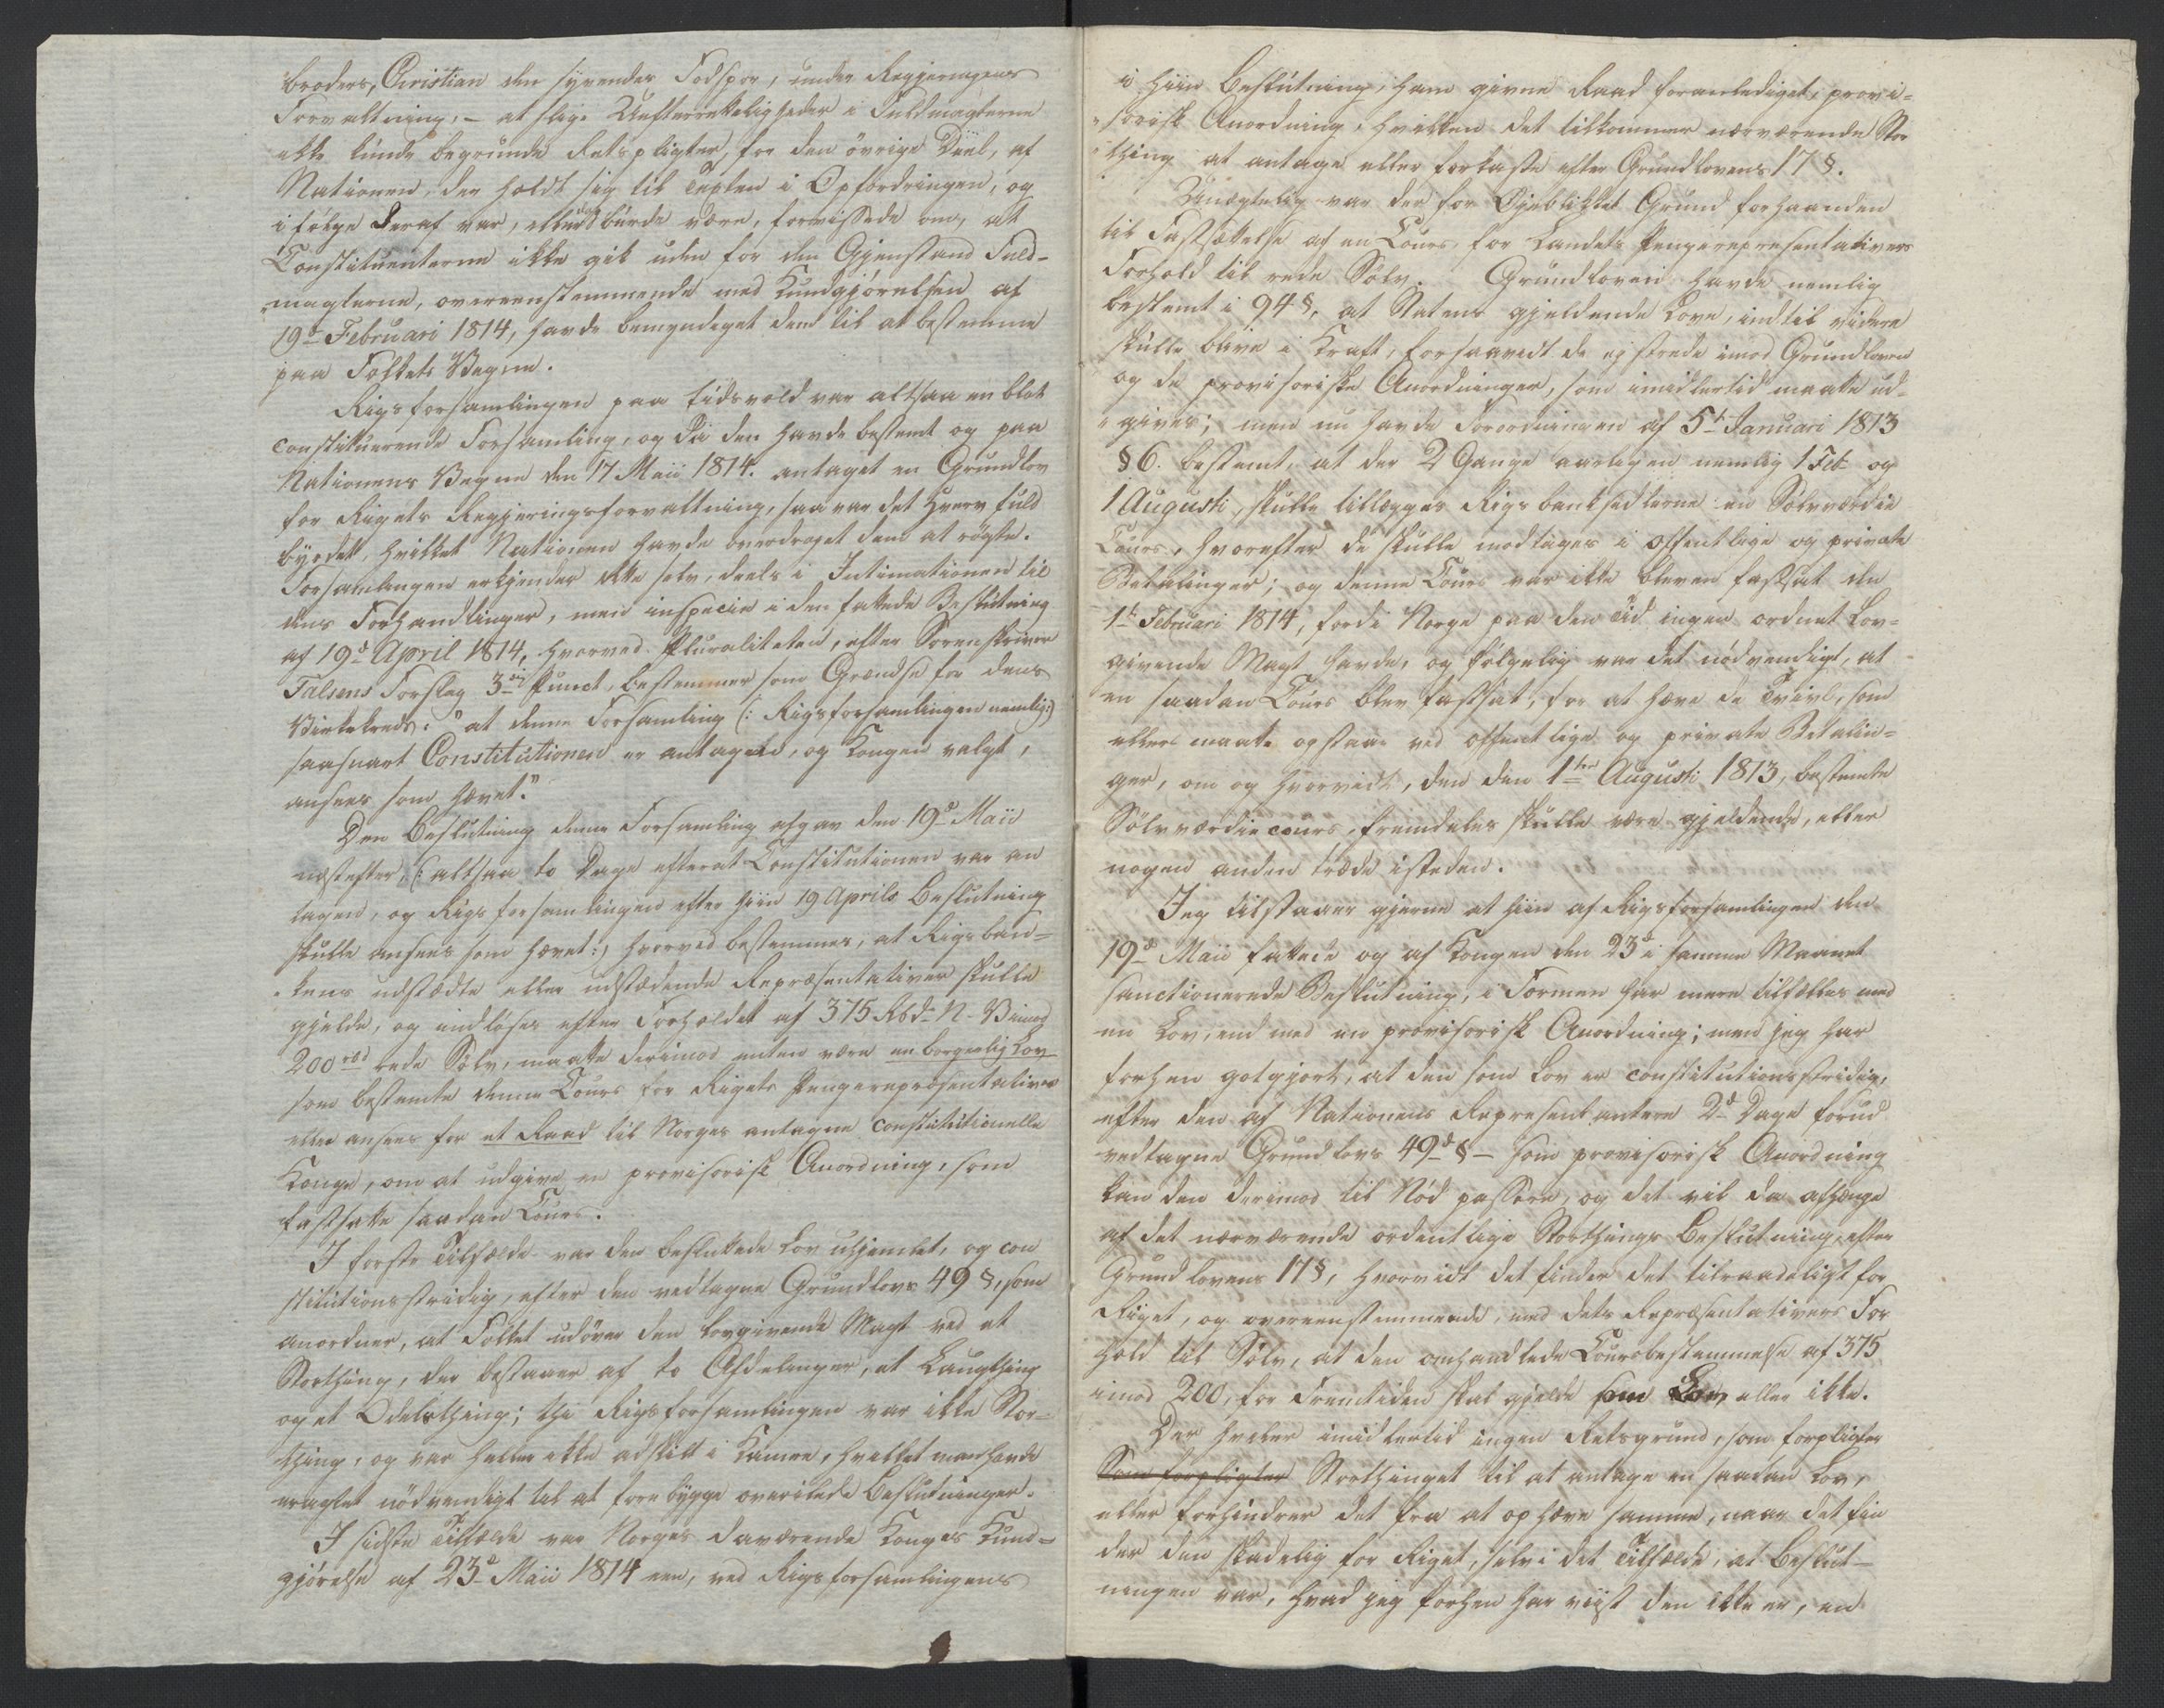 broders, Christian den syvendes Fodspor, under Regjeringens
Forvaltning, – at slige Uefterretteligheder i Fuldmagterne
ikke kunde begrunde Retspligter, for den övrige Deel, af
Nationen, der holdt sig til Texten i Opfordringen, og
i fölge deraf var, eller burde være, forvissede om, at
Constituenterne ikke gik uden for den Gjenstand Fuld-
magterne, overeensstemmende med Kundgjörelsen af
19d Februari 1814, havde bemyndeget dem til at bestemme
paa Folkets Vegne.
Rigsforsamlingen paa Eidsvold var altsaa en blot
constituerende Forsamling, og da den havde bestemt og paa
Nationens Vegne den 17 Maii 1814. antaget en Grundlov
for Rigets Regjeringsforvaltning, saa var det Hverv fuld
byrdet, hvilket Nationen havde overdraget dem at rögte.
Forsamlingen erkjender dette selv, deels i Intimationen til
dens Forhandlinger, men inspecie i den fattede Beslutning
af 19d April 1814, hvorved Pluraliteten, efter Sorenskriver
Falsens Forslag 3die Punct, bestemmer som Grændse for dens
Virkekreds: "at denne Forsamling (: Rigsforsamlingen nemlig:)
saasnart Constitutionen er antagen, og Kongen valgt,
ansees som hævet."
Den Beslutning denne Forsamling afgav den 19d Maii
næstefter, (: altsaa to Dage efterat Constitutionen var an
tagen, og Rigsforsamlingen efter hiin 19 Aprils Beslutning
skulle ansees som hævet:) hvorved bestemmes, at Rigsban-
kens udstædte eller udstædende Repræsentativer skulle
gjelde, og indlöses efter Forholdet af 375 Rbd N. V. imod
200 rbd rede Sölv, maatte derimod enten være en borgerlig Lov
som bestemte denne Cours for Rigets Pengerepræsentativer
eller ansees for et Raad til Norges antagne constitutionelle
Konge, om at udgive en provisorisk Anordning, som
fastsatte saadan Cours.
I forste Tilfælde var den besluttede Lov uhjemlet, og con
stitutionsstridig, efter den vedtagne Grundlovs 49 §, som
anordner, at Folket udöver den lovgivende Magt ved et
Storthing, der bestaaer af to Afdelinger, et Laugthing
og et Odelsthing; thi Rigsforsamlingen var ikke Stor-
thing, og var heller ikke adskilt i Kamre, hvilket man havde
eragtet nödvendigt til at forebygge overilede Beslutninger.
I sidste Tilfælde var Norges daværende Konges Kund-
gjörelse af 23d Maii 1814 een, ved Rigsforsamlingens
i hiin Beslutning, ham givne Raad foranlediget, provi-
sorisk Anordning, hvilken det tilkommer nærværende Stor
thing at antage eller forkaste efter Grundlovens 17 §.
Unægtelig var der for Öjeblikket Grund forhaanden
til Fastsættelse af en Cours, for Landets Pengerepresentativers
Forhold til rede Sölv. Grundloven havde nemlig
bestemt i 94 §, at Statens gjeldende Love, indtil videre
skulle blive i Kraft, forsaavidt de ej strede imod Grundloven
og de provisoriske Anordninger, som imidlertid maatte ud-
gives; men nu havde Forordningen af 5t Januari 1813
§ 6. bestemt, at der 2 Gange aarligen nemlig 1 Feb og
1 Augusti, skulle tillægges Rigsbanksedlerne en Sölvværdie
Cours, hvorefter de skulle modtages i offentlige og private
Betalinger; og denne Cours var ikke bleven fastsat den
1te Februari 1814, fordi Norge paa den Tid ingen ordnet Lov-
givende Magt havde, og fölgelig var det nödvendigt, at
en saadan Cours blev fastsat, for at hæve de Tvivl, som
ellers maatte opstaae ved offentlige og private Betalin-
ger, om og hvorvidt, den den 1ste Augusti 1813, bestemte
Sölvværdiecours, fremdeles skulle være gjeldende, eller
nogen anden træde isteden.
Jeg tilstaaer gjerne at hiin af Rigsforsamlingen den
19d Maii fattede og af Kongen den 23d i samme Maanet
sanctionerede Beslutning, i Formen har mere tilfælles med
en Lov, end med en provisorisk Anordning; men jeg har
forhen gotgjort, at den som Lov er constitutionsstridig,
efter den af Nationens Representantere 2d Dage forud
vedtagne Grundlovs 49d § – som provisorisk Anordning
kan den derimod til Nöd passere, og det vil da afhænge
af det nærværende ordentlige Storthings Beslutning, efter
Grundlovens 17 §, hvorvidt det finder det tilraadeligt for
Riget, og overeensstemmende, med dets Repræsentativers For
hold til Sölv, at den omhandlede Coursbestemmelse af 375
imod 200, for Fremtiden skal gjelde som Lov, eller ikke.
Der hviler imidlertid ingen Retsgrund, som forpligter
Som forpligter Storthinget til at antage en saadan Lov,
eller forhindrer det fra at ophæve samme, naar det fin
der den skadelig for Riget, selv i det Tilfælde, at Beslut-
ningen var, hvad jeg forhen har viist den ikke er, en